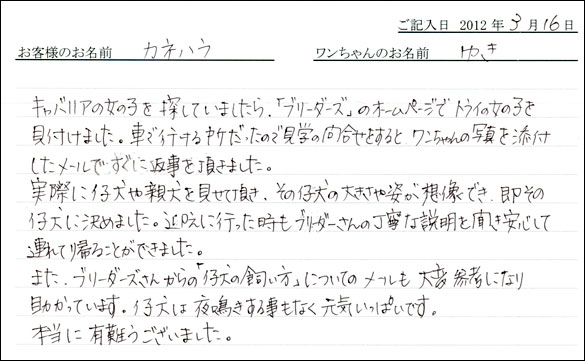 ご記入日 2012年3月16日
お客様のお名前 カネハラ ワンちゃんのお名前 ゆき
キャバリアの女の子を探していましたら、「ブリーダーズ」のホームページでトライの女の子を
見付けました。車で行ける所だったので見学の問合せをすると ワンちゃんの写真を添付
したメールですぐに返事を頂きました。
実際に仔犬や親犬を見せて頂き、その仔犬の大きさや姿が想像でき、即その
仔犬に決めました。迎えに行った時もブリーダーさんの丁寧な説明を聞き安心して
連れて帰ることができました。
また、ブリーダーズさんからの「仔犬の飼い方」についてのメールも 大変参考になり
助かっています。仔犬は夜鳴きする事もなく元気いっぱいです。
本当に有難うございました。